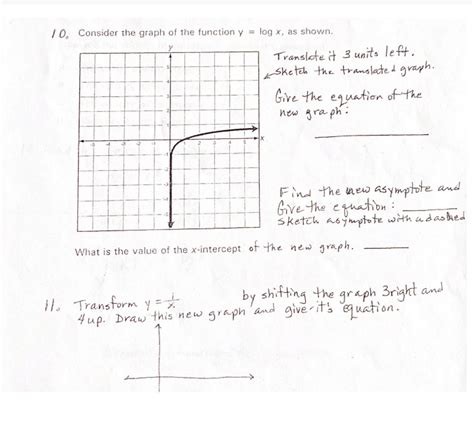 10. Consider the graph of the function y = log x, as shown.
Translate it 3 units left.
Sketch the translated graph.
Give the equation of the
new graph:
Find the new asymptote and
Give the equation:
Sketch asymptote with a dashed
What is the value of the x-intercept of the new graph.
11. Transform y = 1/x by shifting the graph 3 right and
4 up. Draw this new graph and give it's equation.
y
x